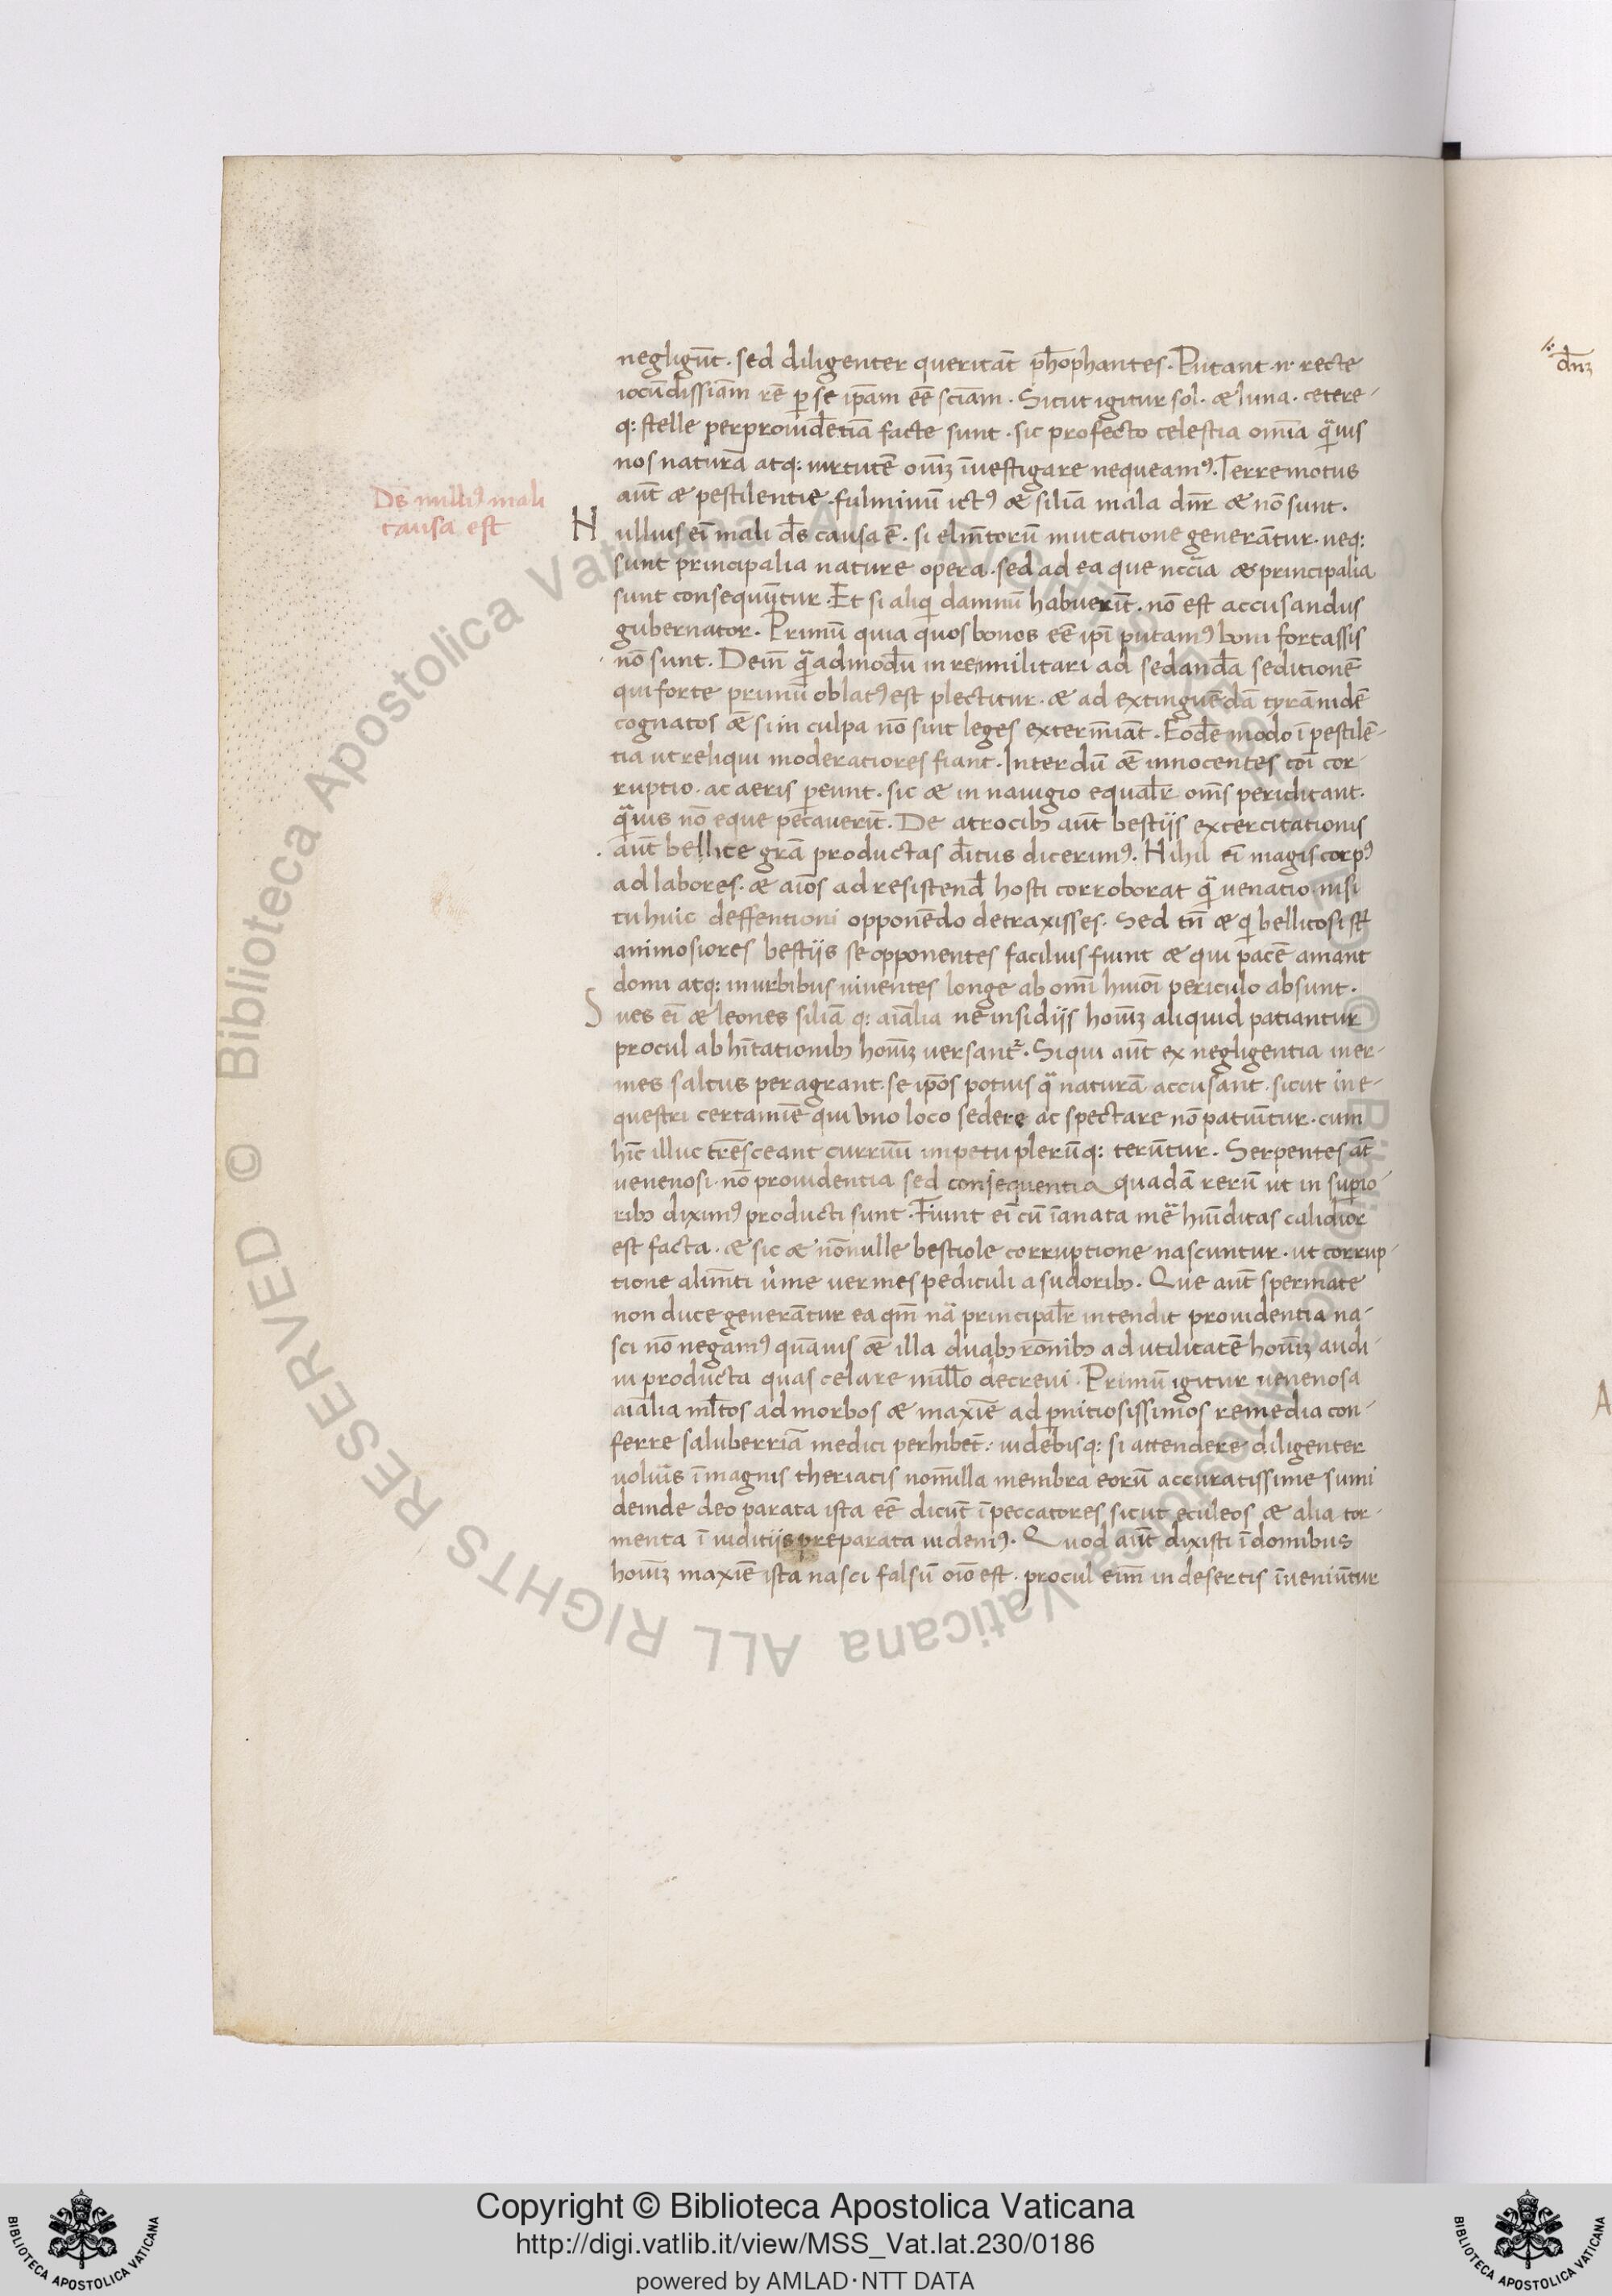 negligūt. sed diligenter queritāt ph̄ophantes. Putant .n. recte
iocūdissiām rē ꝑ se ip̄am eē sciam. Sicut igitur sol. æ luna. cetere-
q; stelle per prouidētiā facte sunt. sic profecto celestia om̄ia q̄uis
nos naturā atq; uirtutē om̄iꝫ īuestigare nequeamꝰ. Terremotus
aūt æ pestilentie. fulminū ictꝰ æ siliā mala dn̄r æ nō sunt.
Ds̄ nulliꝰ mali
causa est
N ulliusei̅ mali ds̄ causa ē. si elm̄torū mutatione generātur. neq;
sunt principalia nature opera. sed ad ea que nccīa æ principalia
sunt consequūtur. Et si aliqi damnū habuerit̄. nō est accusandus
gubernator. Primū quia quos bonos eē ip̄i putamꝰ boni fortassis
nō sunt. Dein̄ q̄admodū in re militari ad sedandā seditionē
qui forte primū oblatꝰ est plectitur. æ ad extinguēdā tyrānidē
cognatos æ si in culpa nō sint leges exterm̄iāt. Eodē modo ī pestilē-
tia ut reliqui moderatiores fiant. Interdū æ innocentes coī cor-
ruptio. ac aeris ꝑeunt. sic æ in nauigio equalr̄ oms̄ periclitant.
q̄uis nō eque peccauerīt. De atrocibꝫ aūt bestijs excercitationis
aūt bellice grā productas d̄itus dicerimꝰ. Nihil ei̅ magis corpꝰ
ad labores. æ aiōs ad resistend̄ hosti corroborat q̄ uenatio nisi
tu huic deffentioni opponēdo detraxisses. Sed tn̄ æ qi bellicosi st̄
animosiores bestijs se opponentes facilius fiunt æ qui pacē amant
domi atq; in urbibus uiuentes longe ab om̄i hmōi periculo absunt.
S ues ei̅ æ leones siliā q; aīalia ne insidijs hom̄iꝫ aliquid patiantur
procul ab hītationibꝫ hom̄iꝫ uersantꝛ. Siqui aūt ex negligentia iner-
mes saltus peragrant. se ip̄os potius q̄ naturā accusant. sicut in e-
questri certamīe qui uno loco sedere ac spectare nō patiūtur. cum
hīc illuc trēsceant curruū impetu plerūq; terūtur. Serpentes aūt
uenenosi. nō prouidentia sed consequentia quadā rerū ut in suꝑio-
ribꝫ diximꝰ producti sunt. Fiunt ei̅ cū īanata mē humiditas calidior
est facta. æ sic æ nōnulle bestiole corruptione nascuntur. ut corrup-
tione alim̄ti uīme uermes pediculi a sudoribꝫ. Que aūt spermate
non duce generātur ea qm̄ nā principalr̄ intendit prouidentia na-
sci nō negamꝰ quāuis æ illa duabꝫ rōnibꝫ ad utilitatē hom̄iꝫ audi-
ui producta quas celare null̄o decreui. Primū igitur uenenosa
aīalia ml̄tos ad morbos æ maxīe ad ꝑnitiosissimos remedia con-
ferre saluberriā medici perhibet̄. uidebisq; si attendere diligenter
uoluīs ī magnis theriacis nonnulla membra eorū accuratissime sumi
deinde deo parata ista eē dicūt ī peccatores sicut eculeos æ alia tor-
menta ī iuditijs preparata uidemꝰ. Quod aūt dixisti ī domibus
hom̄iꝫ maxīe ista nasci falsū oīo est. procul eim̄ in desertis īueniūtur
dn̄ꝫ
A
Copyright © Biblioteca Apostolica Vaticana
http://digi.vatlib.it/view/MSS_Vat.lat.230/0186
powered by AMLAD·NTT DATA